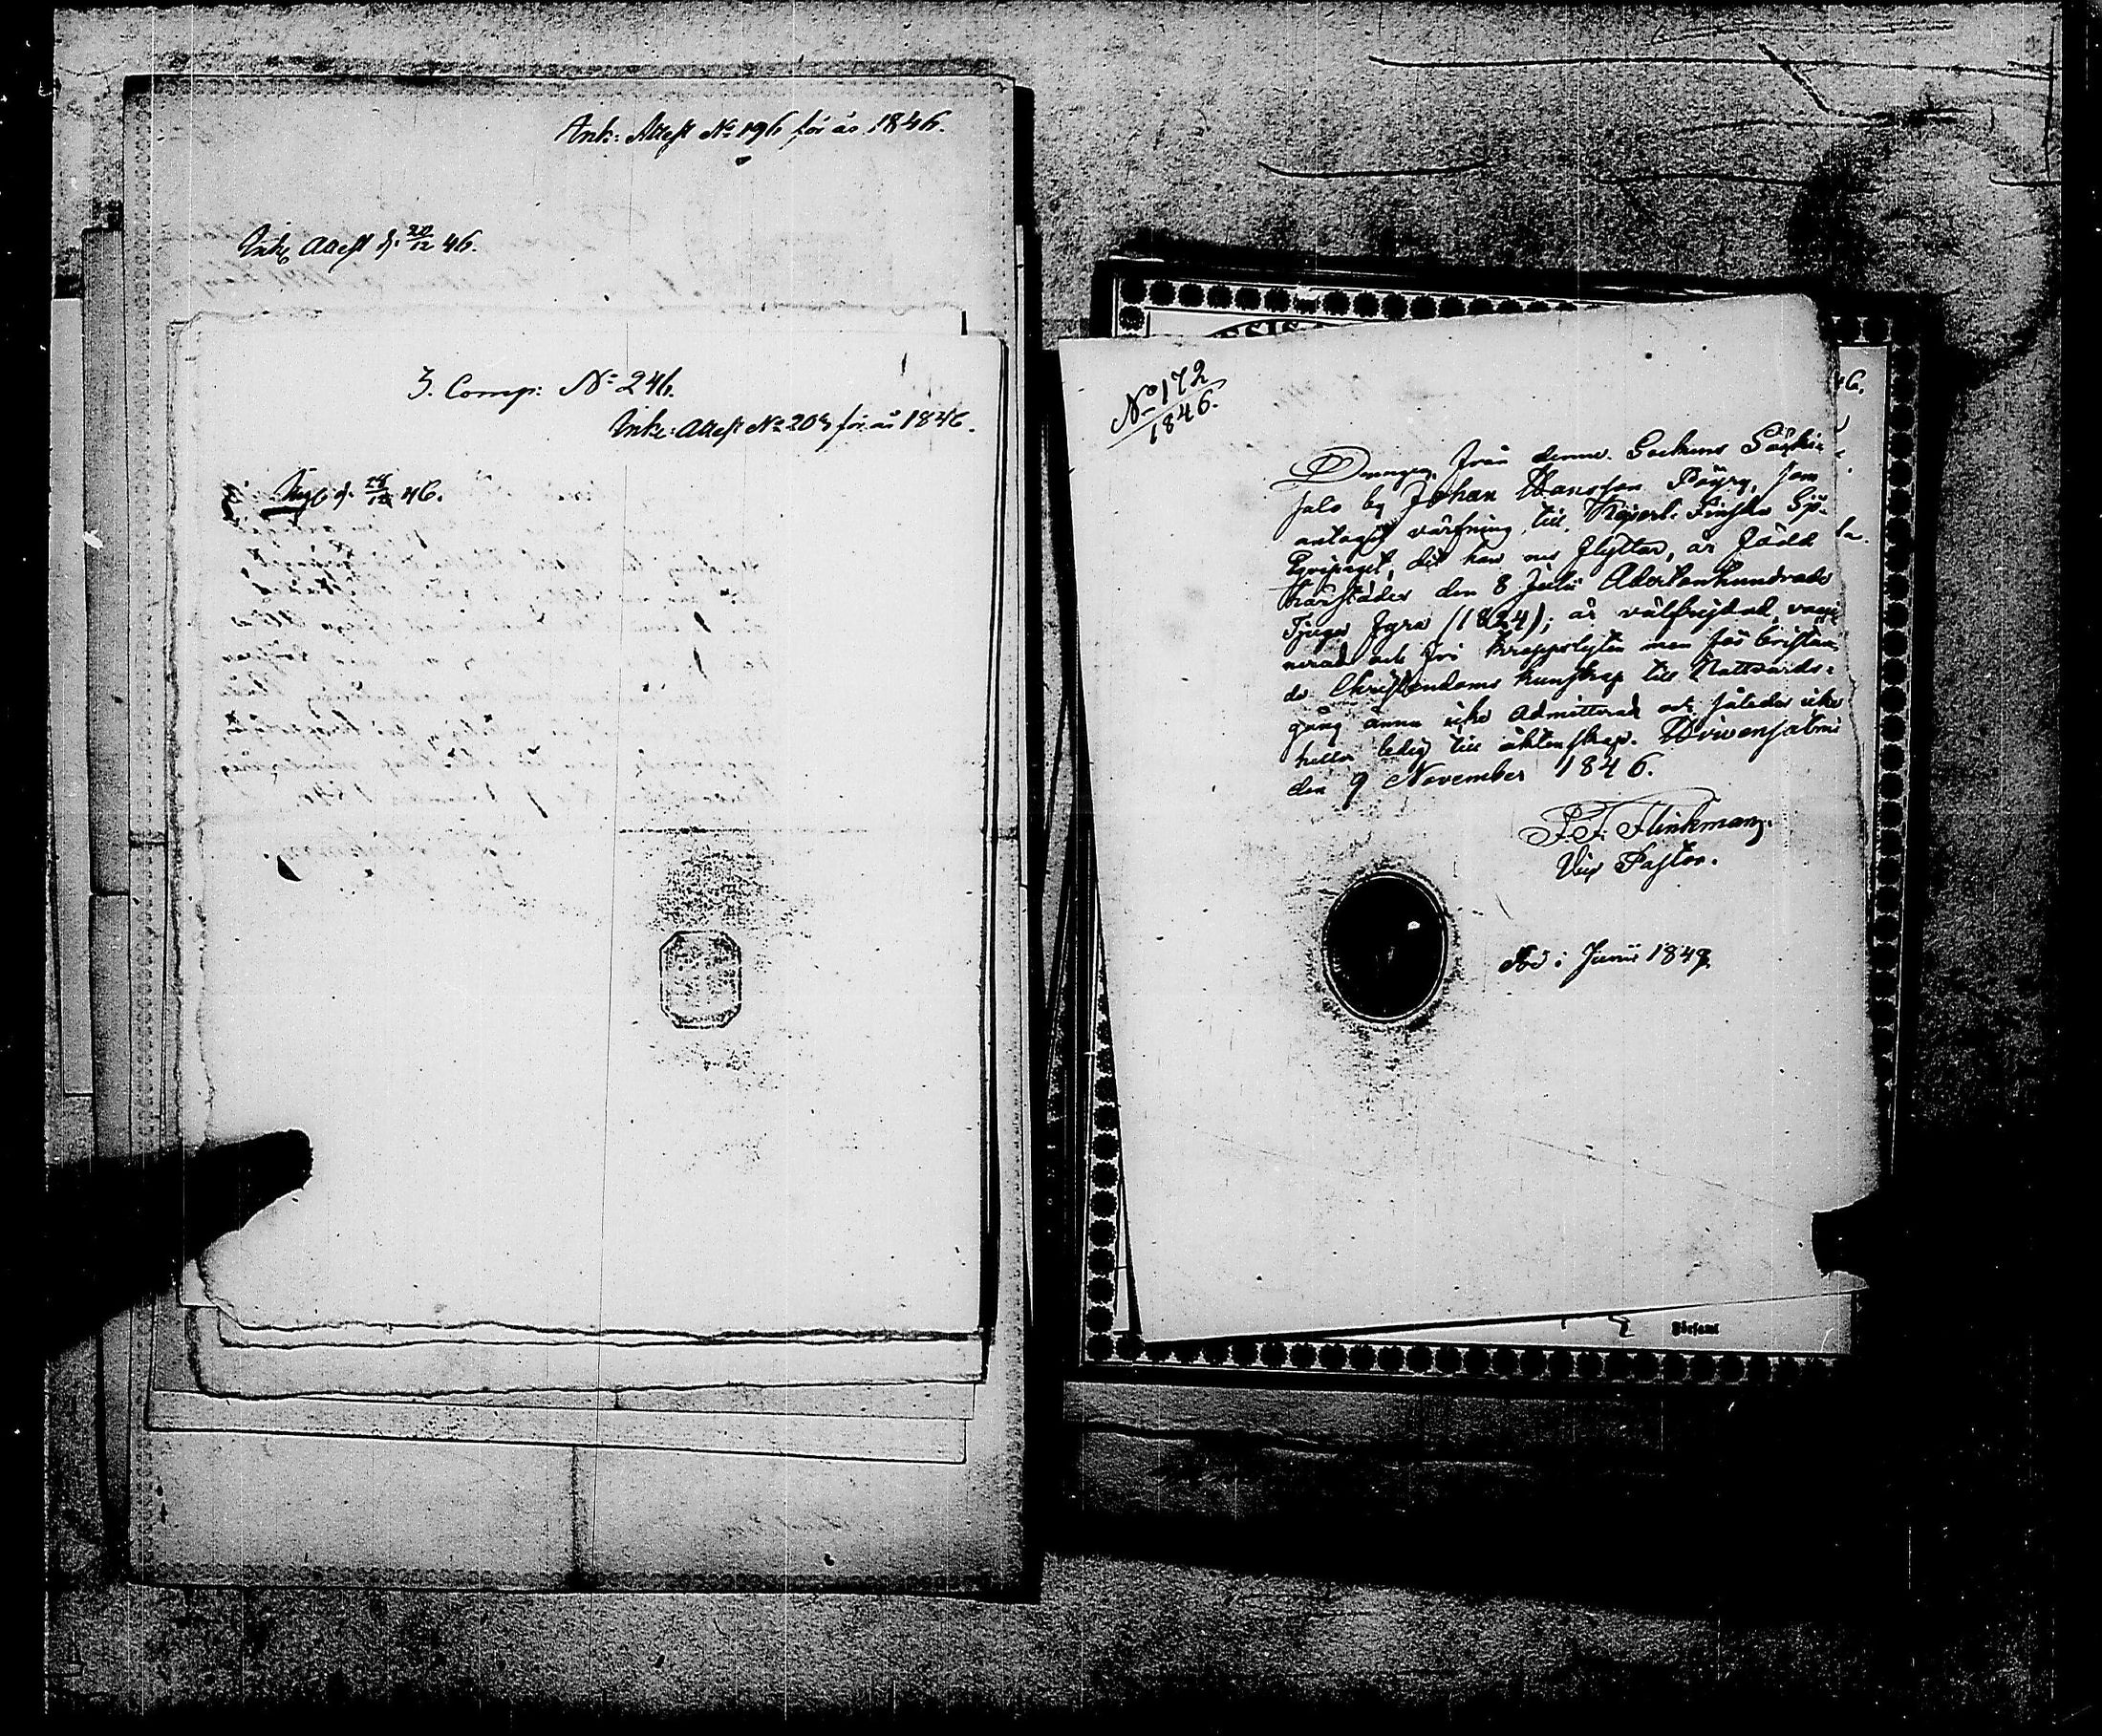 Ank: Attest № 196 för år 1846.
Ink. Attest d. 20/12 46.
3. Comp: № 246.
Ink: Attest № 203 för år 1846.
d. 28/12 46.
№ 172
1846.
Drängen från denne Sockens
salo by Johan Hansson Pöyry, som
antagit värfning till Kejserl. Finska
Equipaget, dit han nu flyttar, är född
härstädes den 8 Julii Adertonhundrade
Tjugu fyra (1824); är välfrejdad, vacci-
nerad och fri kroppslyten men för bristan-
de Christendoms kunskap till Nattvards-
gång ännu icke Admitterad och således icke
heller ledig till äktenskap. Idivensalmi
den 9 November 1846.
Flinkman.
Vice Pastor.
Död i Junii 1849
Församl